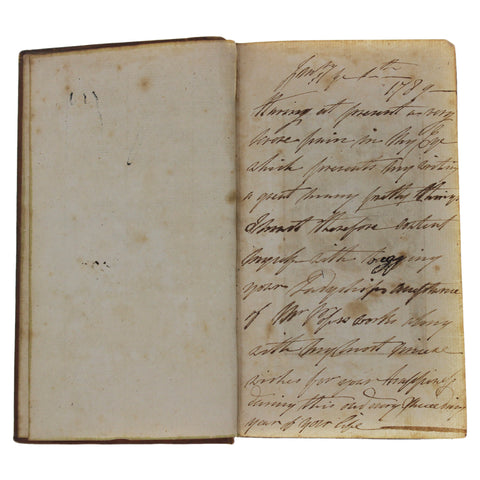 Jany ye 1th
1789
Having at present a very
severe pain in my Eye
which prevents my writing
a great many pretty things
I must therefore content
myself with begging
your Ladyships acceptance
of Mr works along
with my most sincere
wishes for your happiness
during this and every succeeding
year of your life